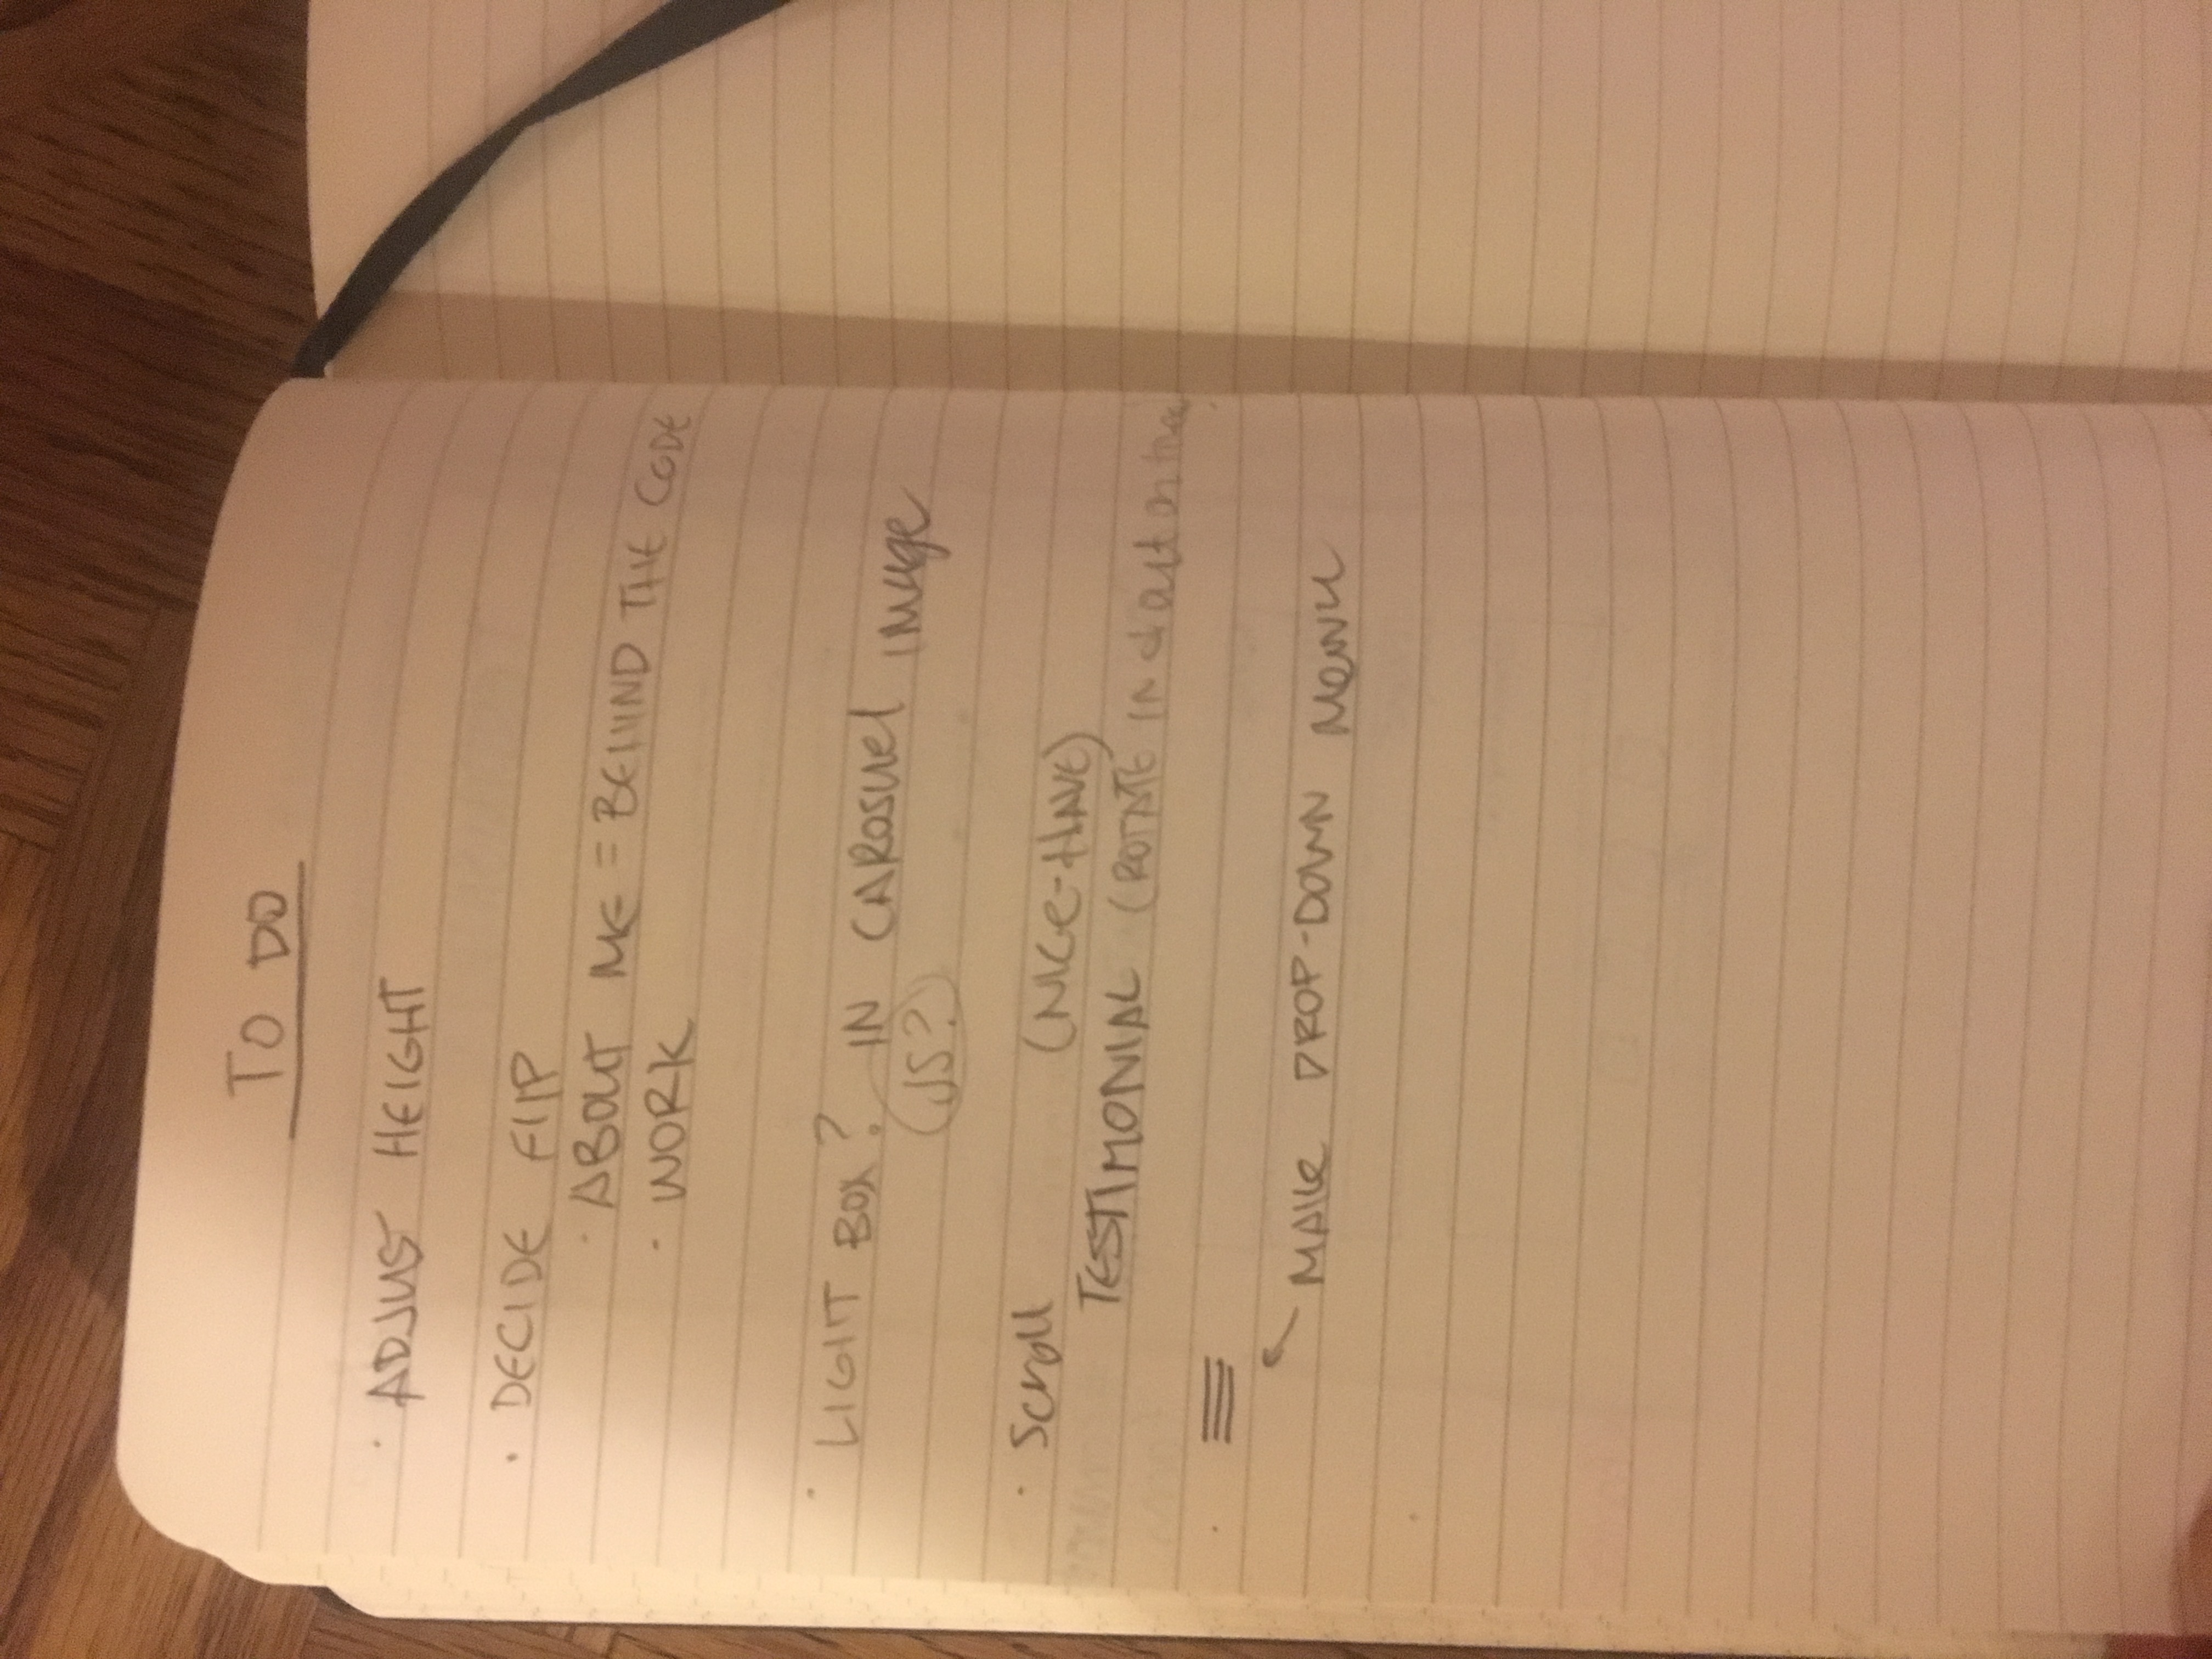 TO DO
· ADJUST HEIGHT
· DECIDE FLIP
· ABOUT ME = BEHIND THE CODE
· WORK
· LIGHT BOX? IN CAROSUEL IMAGE
JS?
· Scroll (NICE-HAVE)
TESTIMONIAL (ROTATE IN & out on
· MAKE DROP-DOWN MENU